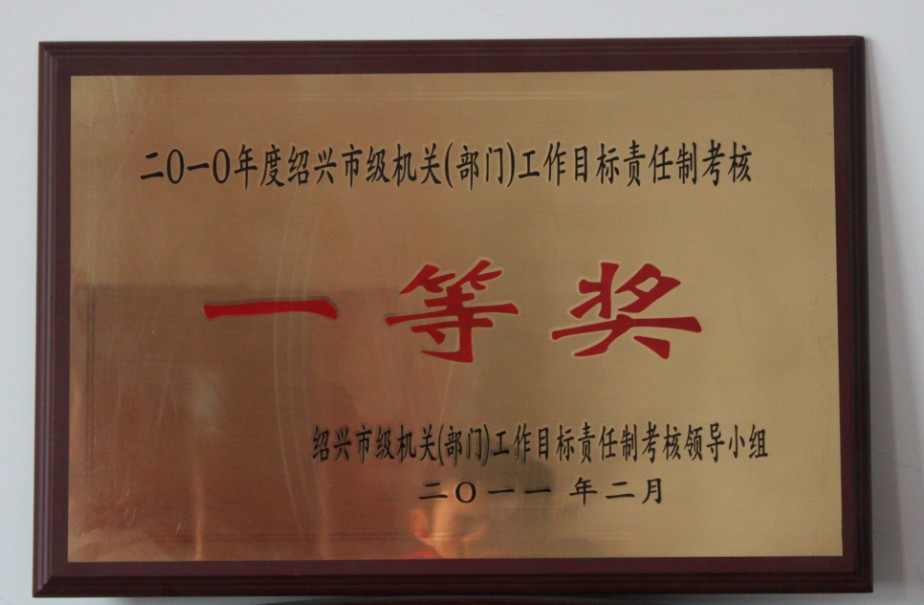 二〇一〇年度绍兴市级机关(部门)工作目标责任制考核
一等奖
绍兴市级机关(部门)工作目标责任制考核领导小组
二〇一一年二月